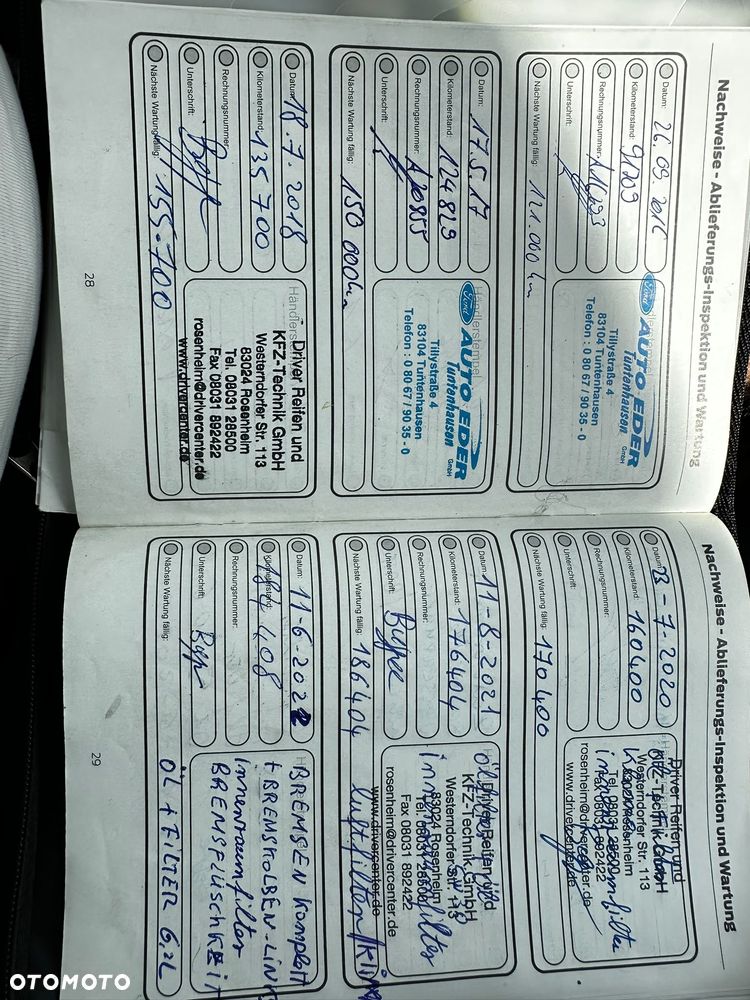 Nachweise - Ablieferungs-Inspektion und Wartung
Datum: 26.09.2016
Kilometerstand: 91209
Rechnungsnummer:
Unterschrift:
Nächste Wartung fällig: 121.000 km
Ford AUTO EDER GmbH
Tuntenhausen
Tillystraße 4
83104 Tuntenhausen
Telefon : 0 80 67 / 90 35 - 0
Datum: 17.5.17
Kilometerstand: 124829
Rechnungsnummer:
Unterschrift:
Nächste Wartung fällig: 150 000 km
Händlerstempel
Ford AUTO EDER GmbH
Tuntenhausen
Tillystraße 4
83104 Tuntenhausen
Telefon : 0 80 67 / 90 35 - 0
Datum: 18.7.2018
Kilometerstand: 135700
Rechnungsnummer:
Unterschrift:
Nächste Wartung fällig: 155-700
Händlerstempel
Driver Reifen und
KFZ-Technik GmbH
Westerndorfer Str. 113
83024 Rosenheim
Tel. 08031 28500
Fax 08031 892422
rosenheim@drivercenter.de
www.drivercenter.de
28
Nachweise - Ablieferungs-Inspektion und Wartung
Datum: - 7 - 2020
Kilometerstand: 160400
Rechnungsnummer:
Unterschrift:
Nächste Wartung fällig: 170400
Driver Reifen und
KFZ-Technik GmbH
Westerndorfer Str. 113
Rosenheim
Tel. 08031 28500
Fax 08031 892422
rosenheim@drivercenter.de
www.drivercenter.de
Datum: 11-8-2021
Kilometerstand: 176404
Rechnungsnummer:
Unterschrift:
Nächste Wartung fällig: 186404 luftfilter/
Driver Reifen und
KFZ-Technik GmbH
Westerndorfer Str. 113
83024 Rosenheim
Tel. 08031 28500
Fax 08031 892422
rosenheim@drivercenter.de
www.drivercenter.de
Datum: 11-6-2022
Kilometerstand: 184408
Rechnungsnummer:
Unterschrift:
Nächste Wartung fällig: ÖL + FILTER 6,2L
BREMSEN Komplett
+ BREMSKOLBEN-LINK
Innenraumfilter
BREMSFLÜSCHKEIT
29
OTOMOTO